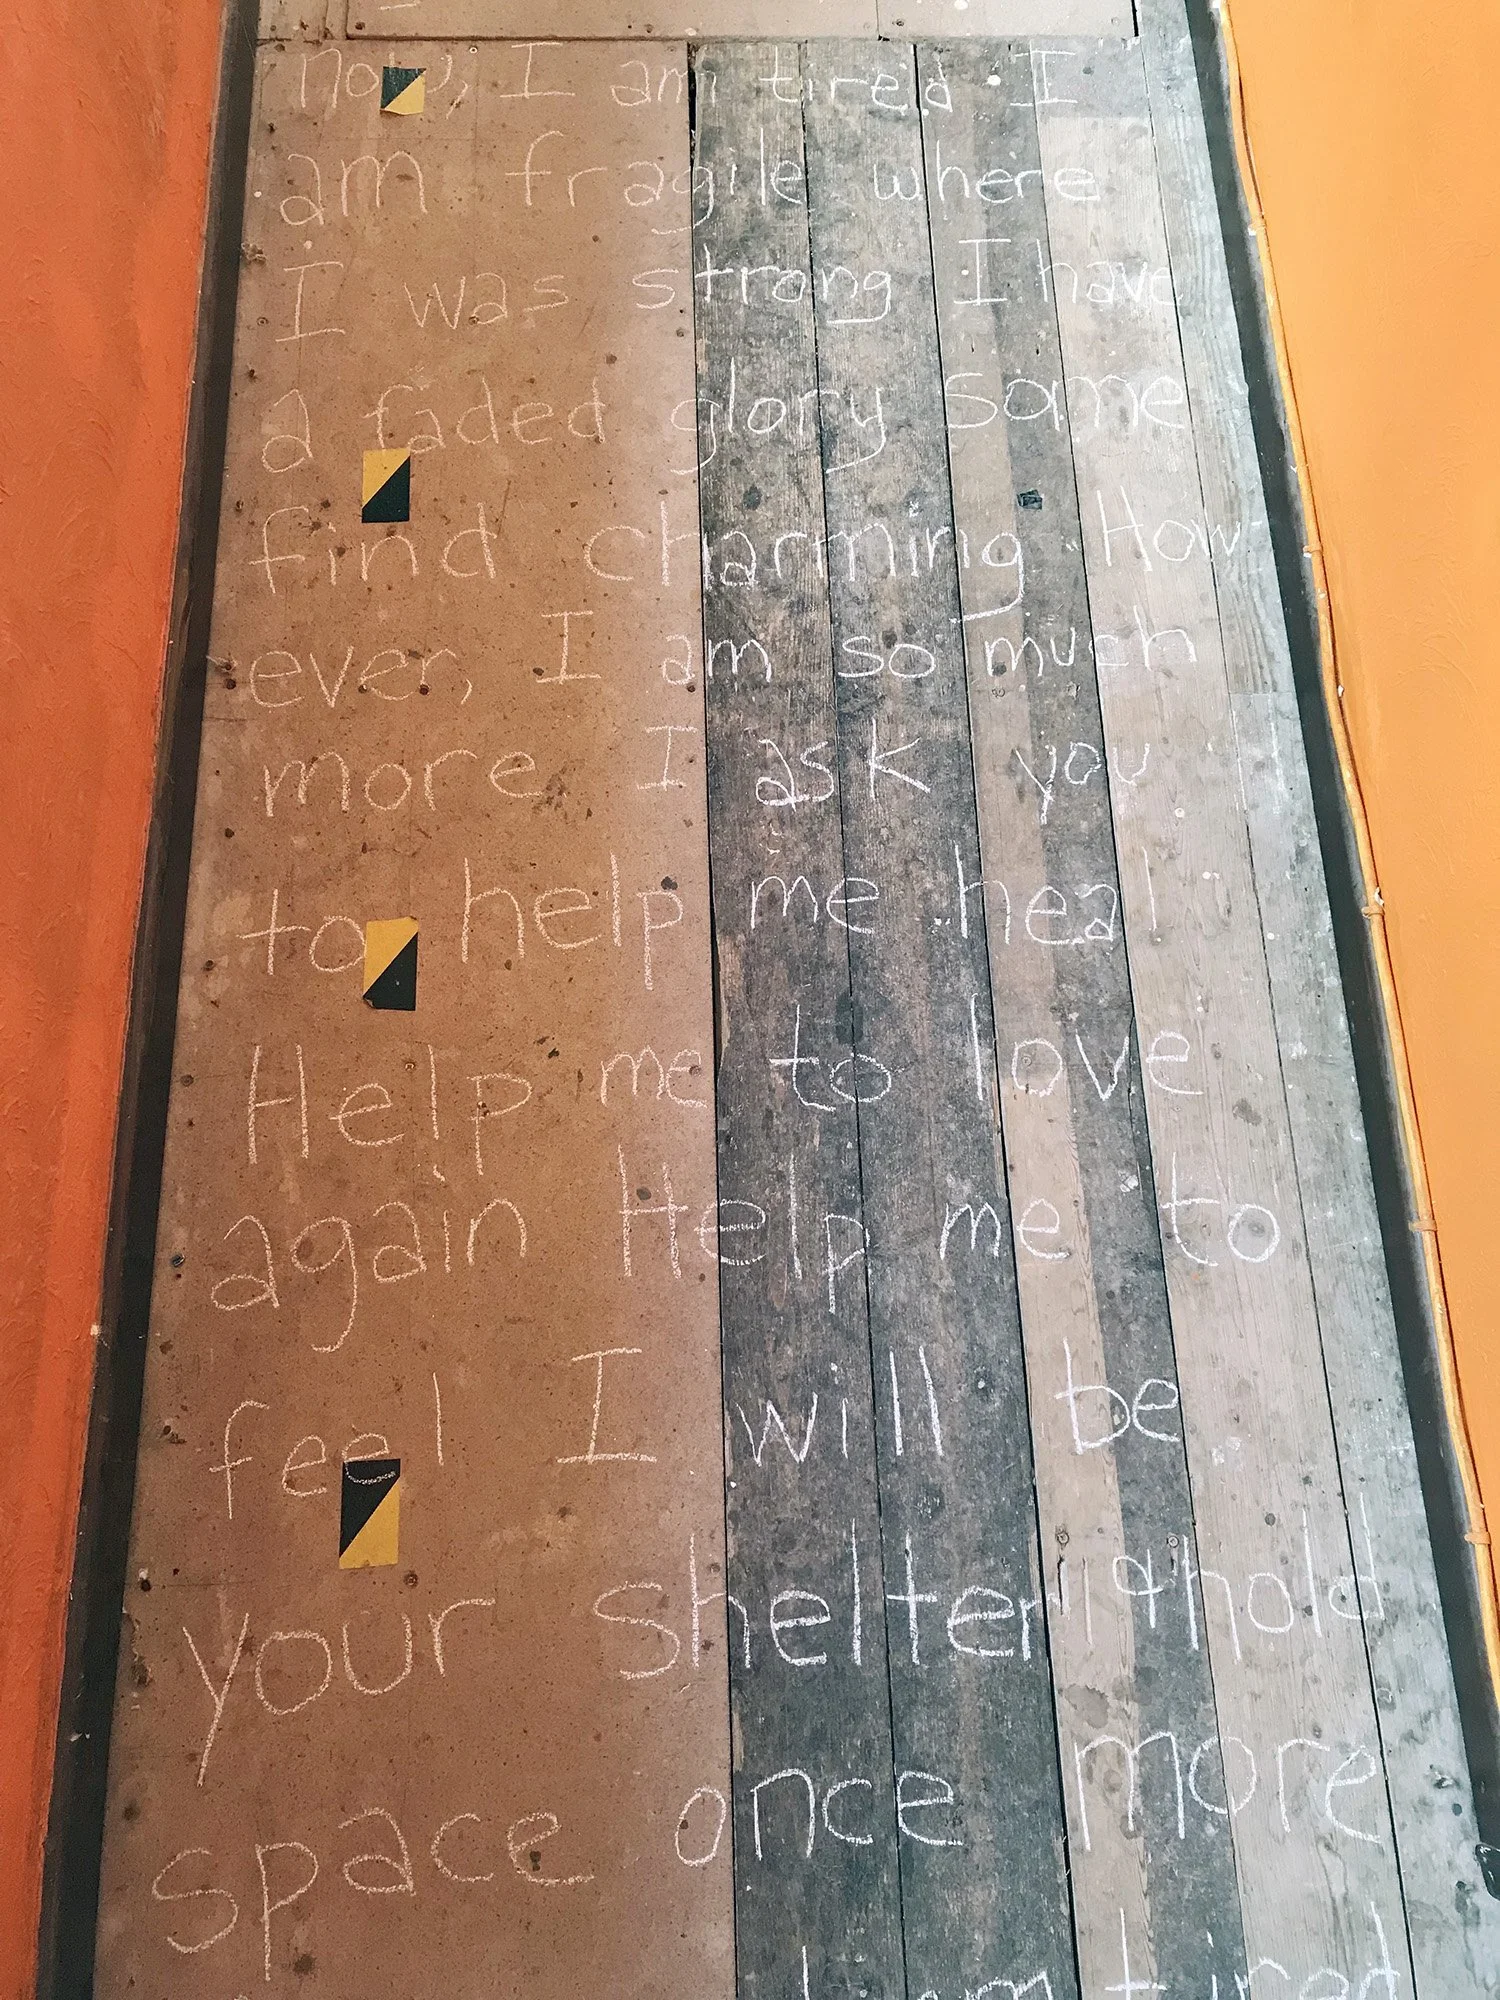 now, I am tired I
am fragile where
I was strong I have
a faded glory some
find charming How
ever, I am so much
more I ask you
to help me heal
Help me to love
again Help me to
feel I will be
your shelter hold
space once more
I am tired